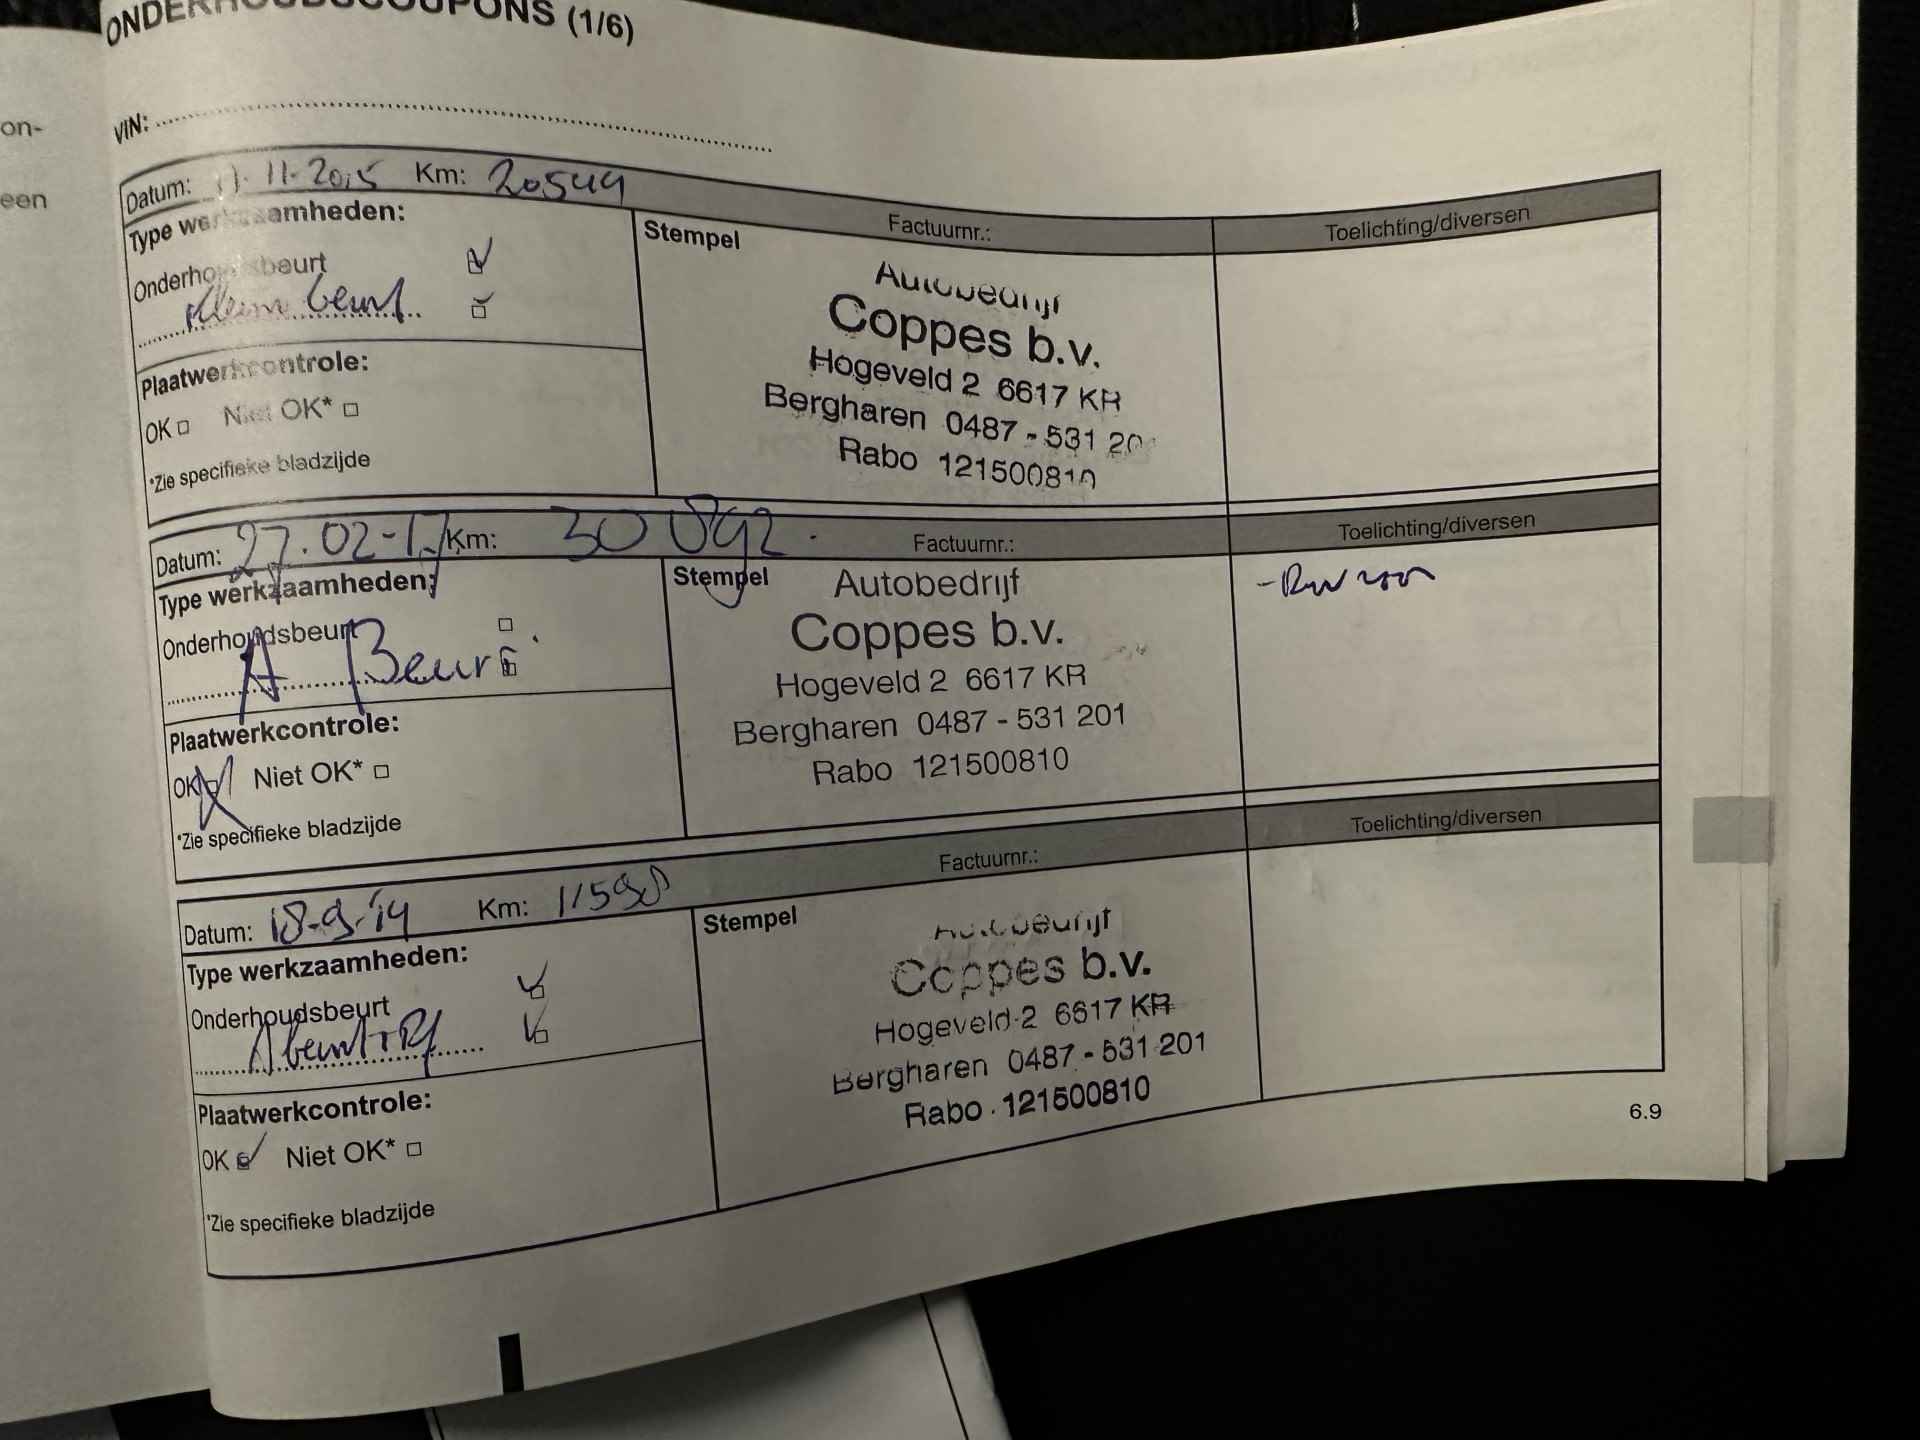 on-
een
ONDERHOUDSCOUPONS (1/6)
VIN:
Datum: 11-11-2015 Km: 20544
Factuurnr.:
Toelichting/diversen
Type werkzaamheden:
Stempel
Onderhoudsbeurt
Klein beurt
Autobedrijf
Coppes b.v.
Hogeveld 2 6617 KR
Bergharen 0487 - 531 20
Rabo 121500810
Plaatwerkcontrole:
OK Niet OK*
*Zie specifieke bladzijde
Datum: 27-02-17 Km: 30892
Factuurnr.:
Toelichting/diversen
Type werkzaamheden:
Stempel
Onderhoudsbeurt
A Beurt
Autobedrijf
Coppes b.v.
Hogeveld 2 6617 KR
Bergharen 0487 - 531 201
Rabo 121500810
Plaatwerkcontrole:
OK Niet OK*
*Zie specifieke bladzijde
Datum: 18-9-'14 Km: 11598
Factuurnr.:
Toelichting/diversen
Type werkzaamheden:
Stempel
Onderhoudsbeurt
A beurt +
Autobedrijf
Coppes b.v.
Hogeveld 2 6617 KR
Bergharen 0487 - 531 201
Rabo 121500810
Plaatwerkcontrole:
OK Niet OK*
*Zie specifieke bladzijde
6.9